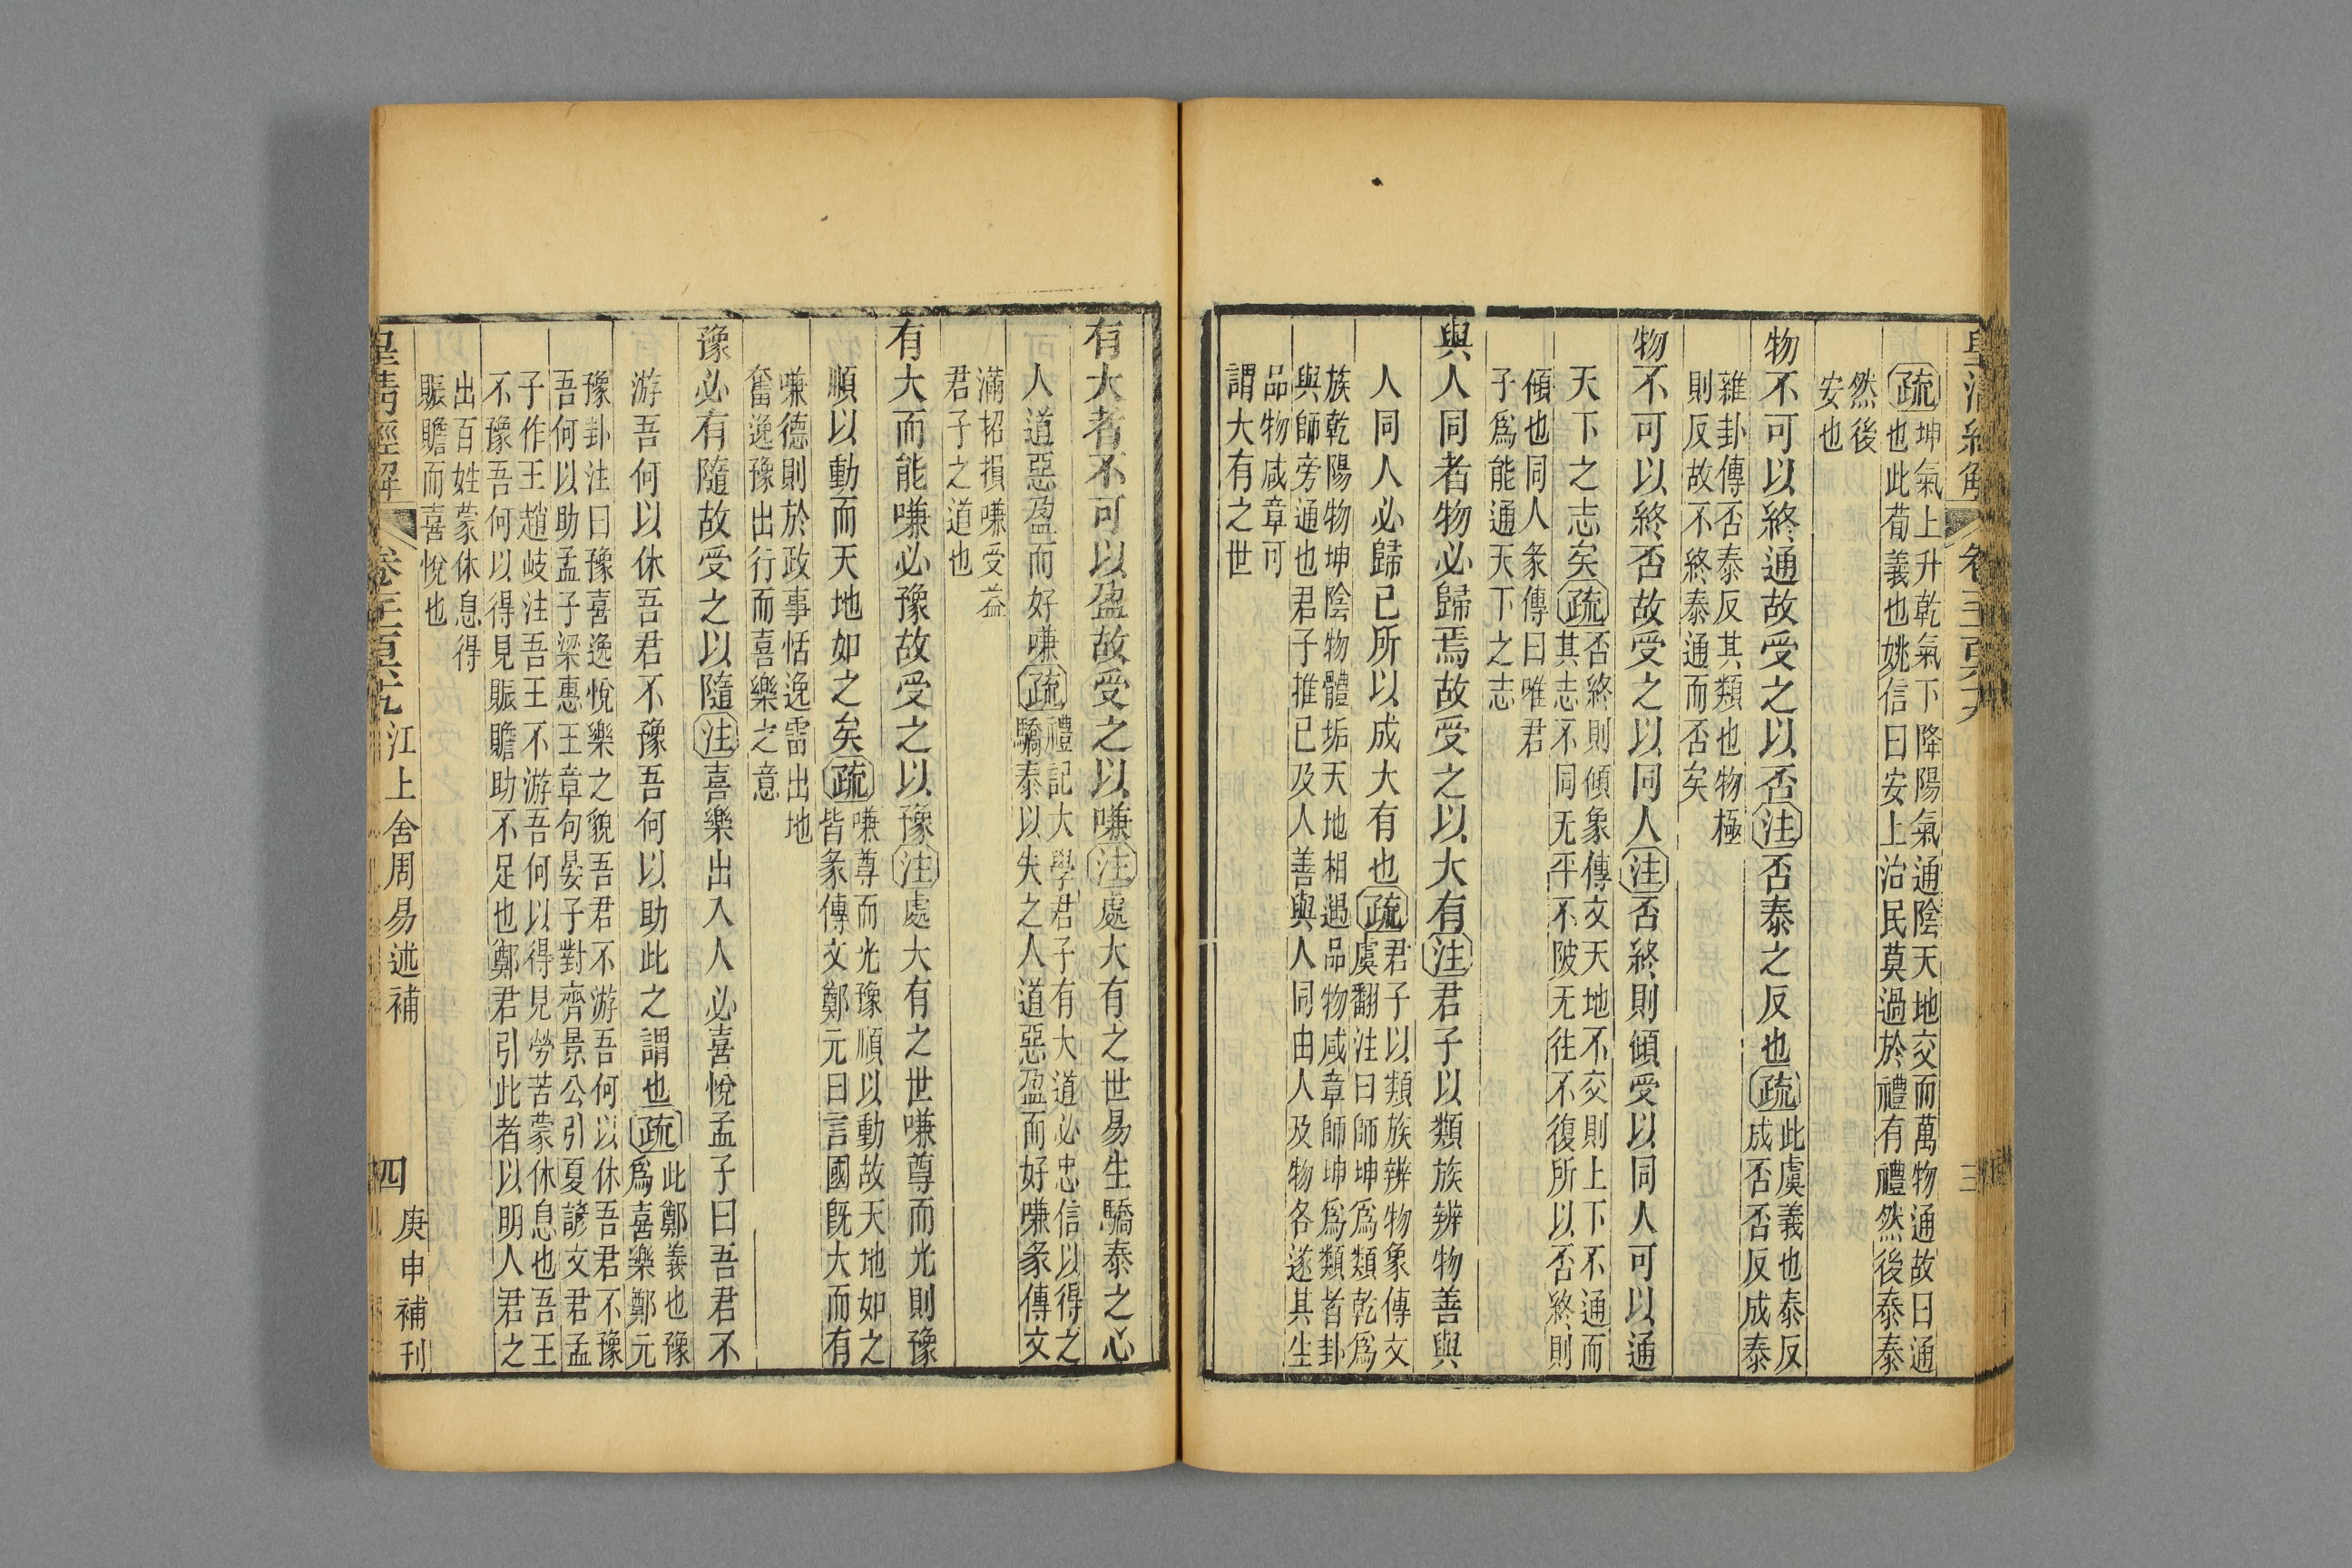 疏坤氣上升乾氣下降陽氣通陰天地交而萬物通故曰通
也此荀義也姚信曰安上治民莫過於禮有禮然後泰泰
然後
安也
物不可以終通故受之以否注否泰之反也疏此虞義也泰反
成否否反成泰
雜卦傳否泰反其類也物極
則反故不終泰通而否矣
物不可以終否故受之以同人注否終則傾受以同人可以通
天下之志矣疏否終則傾象傳文天地不交則上下不通而
其志不同无平不陂无往不復所以否終則
傾也同人彖傳曰唯君
子爲能通天下之志
與人同者物必歸焉故受之以大有注君子以類族辨物善與
人同人必歸已所以成大有也疏君子以類族辨物象傳文
虞翻注曰師坤爲類乾爲
族乾陽物坤陰物體垢天地相遇品物咸章師坤爲類者卦
與師旁通也君子推已及人善與人同由人及物各遂其生
品物咸章可
謂大有之世
有大者不可以盈故受之以嗛注處大有之世易生驕泰之心
人道惡盈而好嗛疏禮記大學君子有大道必忠信以得之
驕泰以失之人道惡盈而好嗛彖傳文
滿招損嗛受益
君子之道也
有大而能嗛必豫故受之以豫注處大有之世嗛尊而光則豫
順以動而天地如之矣疏嗛尊而光豫順以動故天地如之
皆彖傳文鄭元曰言國旣大而有
嗛德則於政事恬逸雷出地
奮逸豫出行而喜樂之意
豫必有隨故受之以隨注喜樂出入人必喜悅孟子曰吾君不
游吾何以休吾君不豫吾何以助此之謂也疏此鄭義也豫
爲喜樂鄭元
豫卦注曰豫喜逸悅樂之貌吾君不游吾何以休吾君不豫
吾何以助孟子梁惠王章句晏子對齊景公引夏諺文君孟
子作王趙岐注吾王不游吾何以得見勞苦蒙休息也吾王
不豫吾何以得見賑贍助不足也鄭君引此者以明人君之
出百姓蒙休息得
賑贍而喜悅也
江上舍周易述補
四
庚申補刊